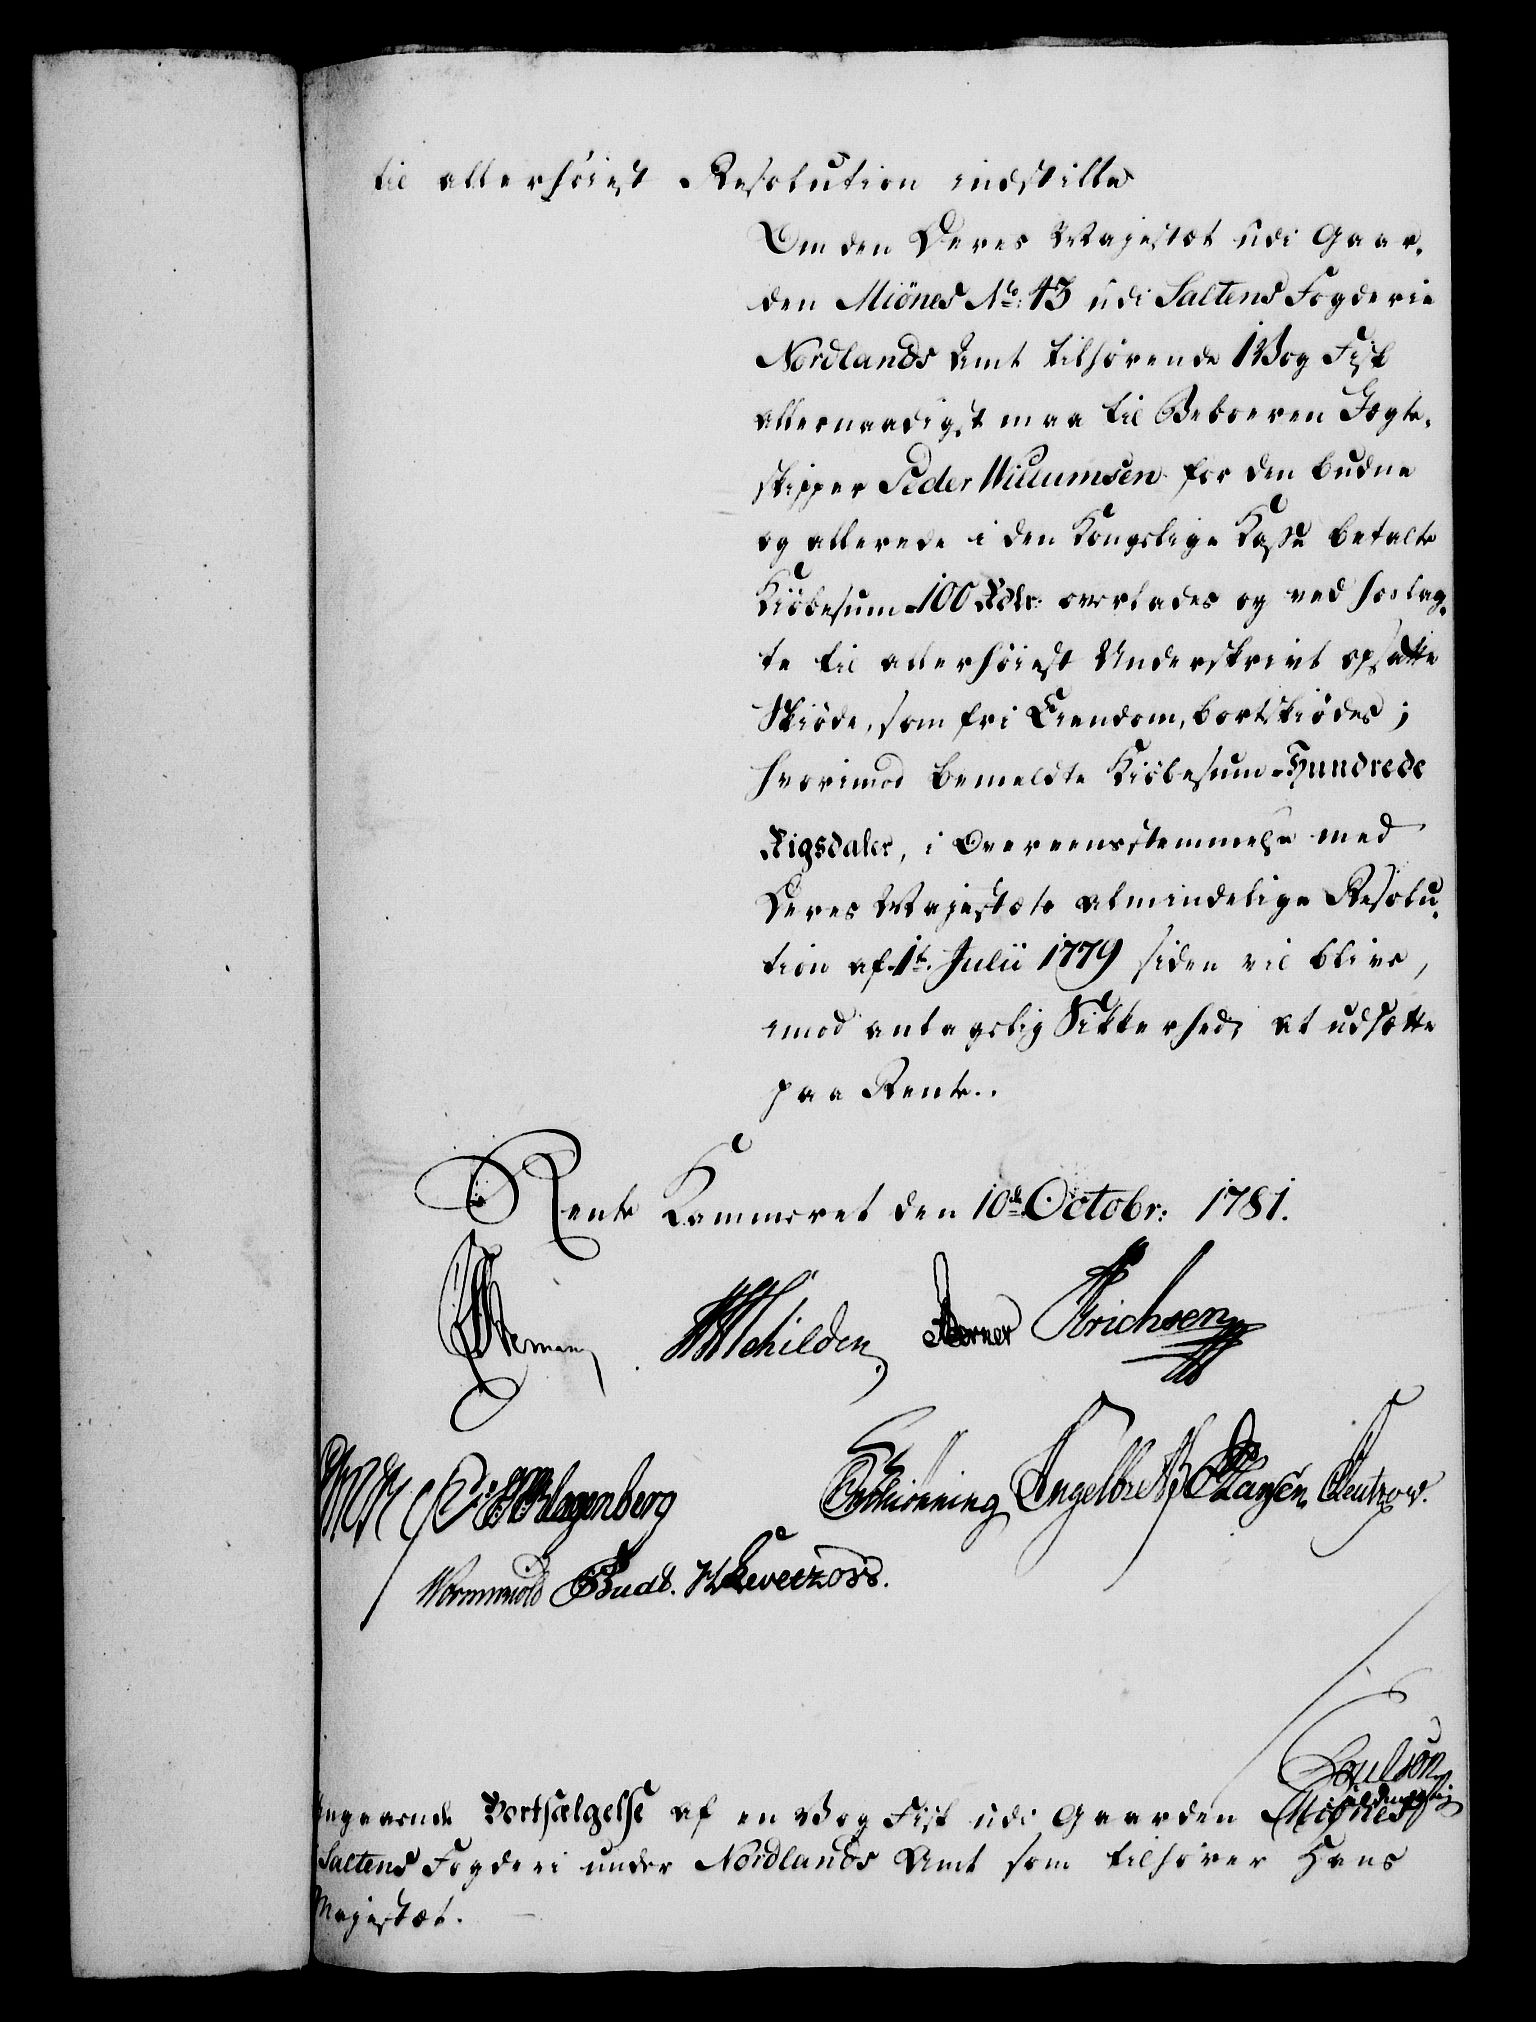 til allerhöiest Resolution indstille
Om den Deres Majestæt udi Gaar-
den Miönes No: 43 udi Saltens Fogderie
Nordlands Amt tilhörende 1 Vog Fisk
allernaadigst maa til Beboeren Jægte-
skipper Peder Willumsen for den budne
og allerede i den Kongelige Kasse betalte
Kiöbesum 100 Rdlr. overlades og ved hoslag-
te til allerhöiest Underskrivt opsatte
Skiöde, som fri Eiendom, bortskiödes;
hvorimod bemeldte Kiöbesum Hundrede
Rigsdaler, i Overeensstemmelse med
Deres Majestæts almindelige Resolu-
tion af 1te Julii 1779 siden vil blive,
imod antagelig Sikkerhed, at udsætte
paa Rente..
Rente Kammeret den 10de Octobr: 1781.
Schilden Berner Erichsen
Klagenberg Schiönning Engelbreth Hansen Leutzow.
Wormskiold Budtz. Kevetzow.
Poulson
Angaaende Bortsælgelse af en Vog Fisk udi Gaarden Miönes
Saltens Fogderi under Nordlands Amt som tilhörer Hans
Majestæt.